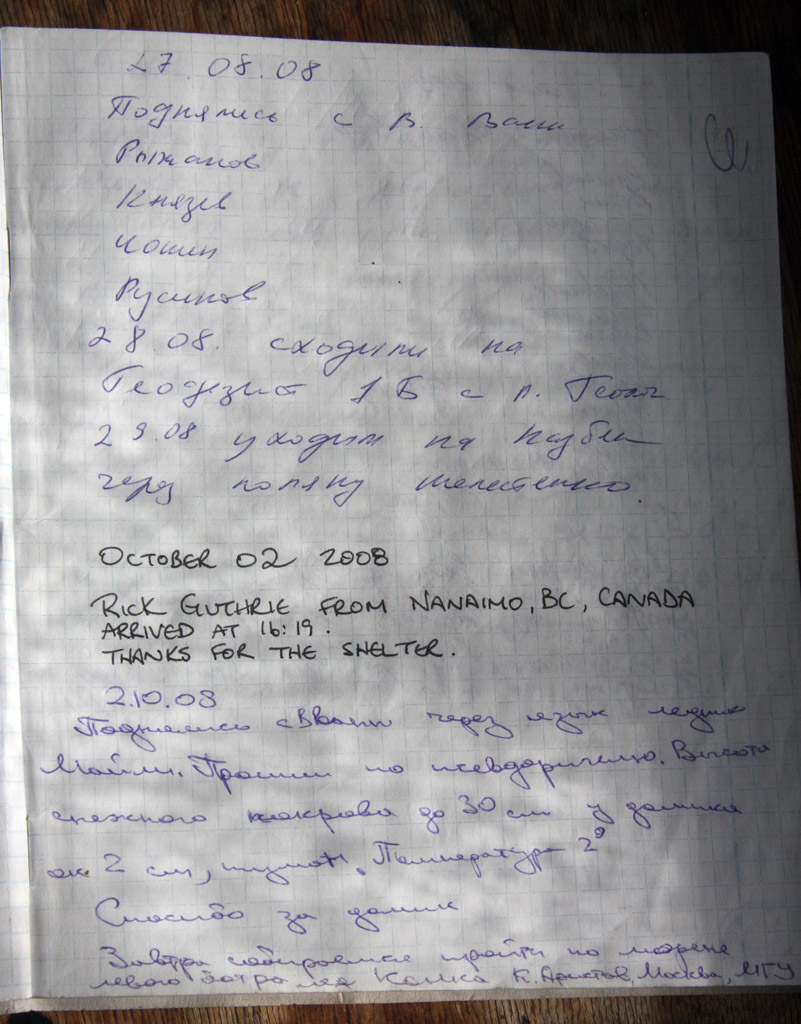 27.08.08
Поднялись с В. Ванн
Рыжанов
Князев
Кошин
Русинов
28.08. сходили на
Геодезист 1Б с п. Геолог
29.08 уходим на Казбек
через поляну Шелестенко.
OCTOBER 02 2008
RICK GUTHRIE FROM NANAIMO, BC, CANADA
ARRIVED AT 16:19.
THANKS FOR THE SHELTER.
2.10.08
Поднялись с В Ванн через язык ледник
Майли. Прошли по псевдоричелю. Высота
снежного покрова до 30 см у домика
ок 2 см, туман. Температура 2°
Спасибо за домик
Завтра собираемся пройти по морене
левого борта лед Колка К. Аристов, Москва, МГУ